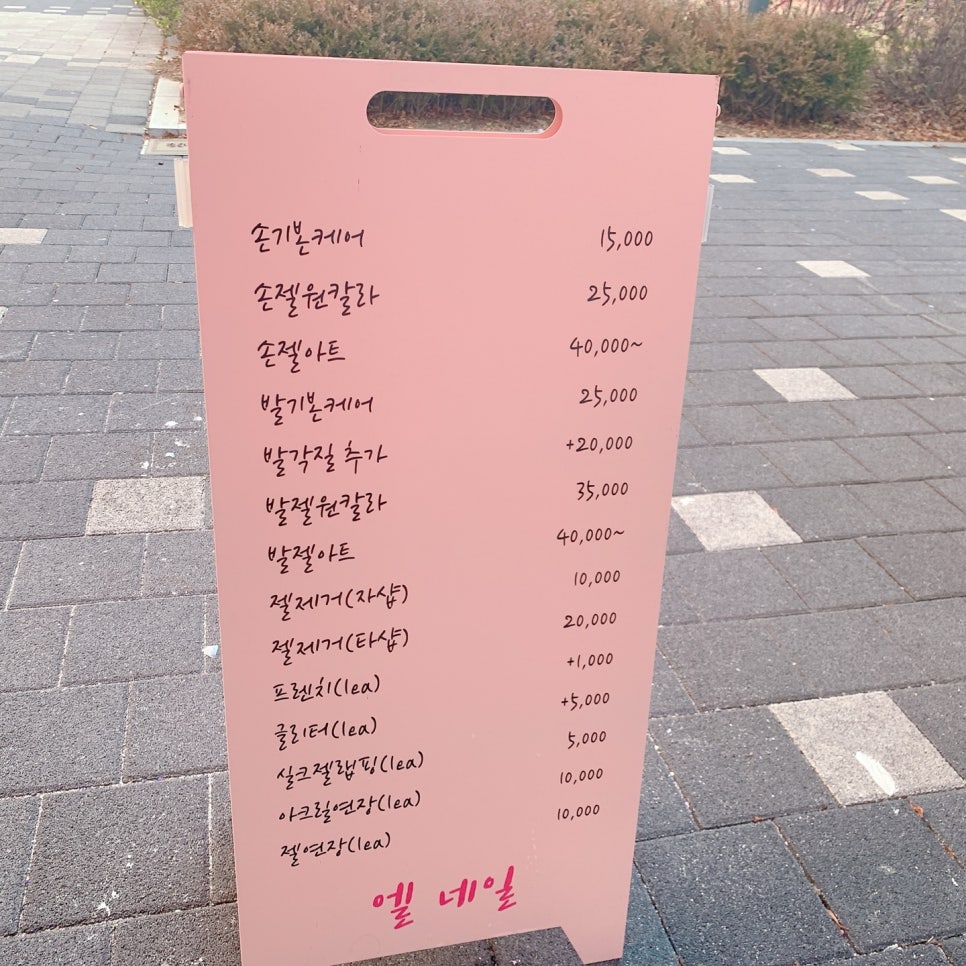 손기본케어 15,000
손젤원칼라 25,000
손젤아트 40,000~
발기본케어 25,000
발각질 추가 +20,000
발젤원칼라 35,000
발젤아트 40,000~
젤제거(자샵) 10,000
젤제거(타샵) 20,000
프렌치(1ea) +1,000
글리터(1ea) +5,000
실크젤랩핑(1ea) 5,000
아크릴연장(1ea) 10,000
젤연장(1ea) 10,000
엘 네일